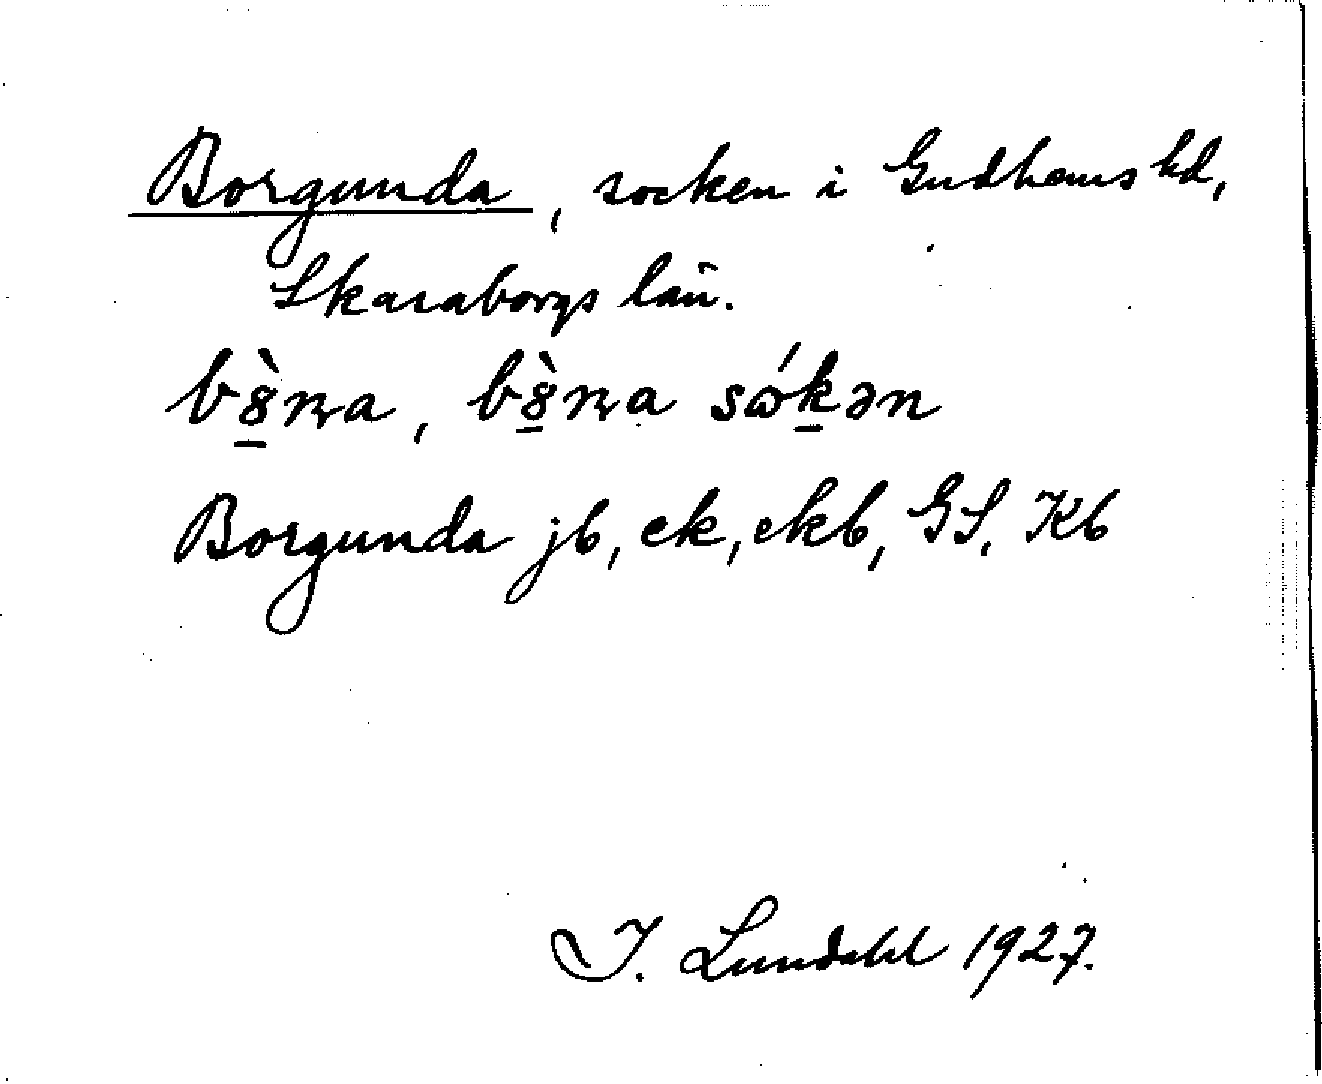 Borgunda, socken i Gudhems hd,
Skaraborgs län.
b8̱̀n̨a, b8̱̀n̨a sώḵən
Borgunda jb, ek, ekb, GS, Kb
I. Lundahl 1927.